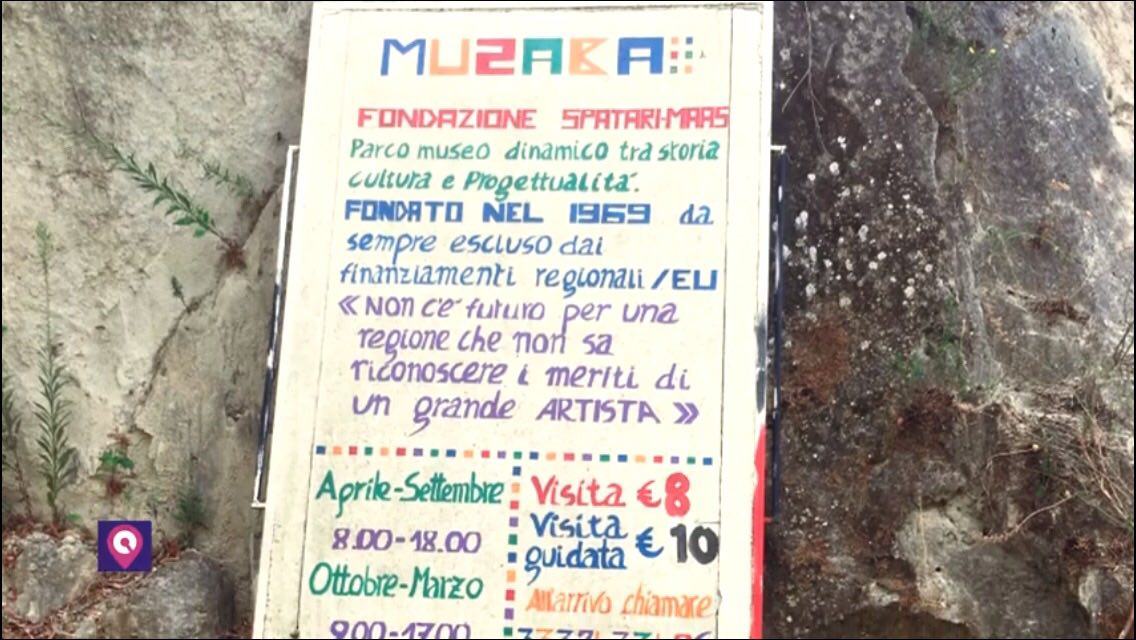 MUZABA
FONDAZIONE SPATARI-MAAS
Parco museo dinamico tra storia
cultura e Progettualità.
FONDATO NEL 1969 da
sempre escluso dai
finanziamenti regionali /EU
« Non c'è futuro per una
regione che non sa
riconoscere i meriti di
un grande ARTISTA »
Aprile-Settembre
8.00-18.00
Ottobre-Marzo
9.00-17.00
Visita € 8
Visita
guidata € 10
All'arrivo chiamare